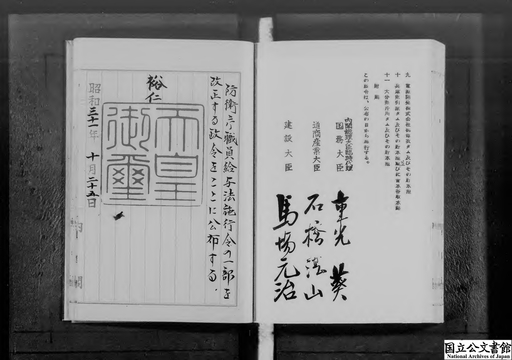 この政令は、公布の日から施行する。
内閣総理大臣臨時代理
国務大臣 重光葵
通商産業大臣 石橋湛山
建設大臣 馬場元治
防衛庁職員給与法施行令の一部を
改正する政令をここに公布する。
裕仁
天皇
御璽
昭和三十一年 十月二十五日
国立公文書館
National Archives of Japan